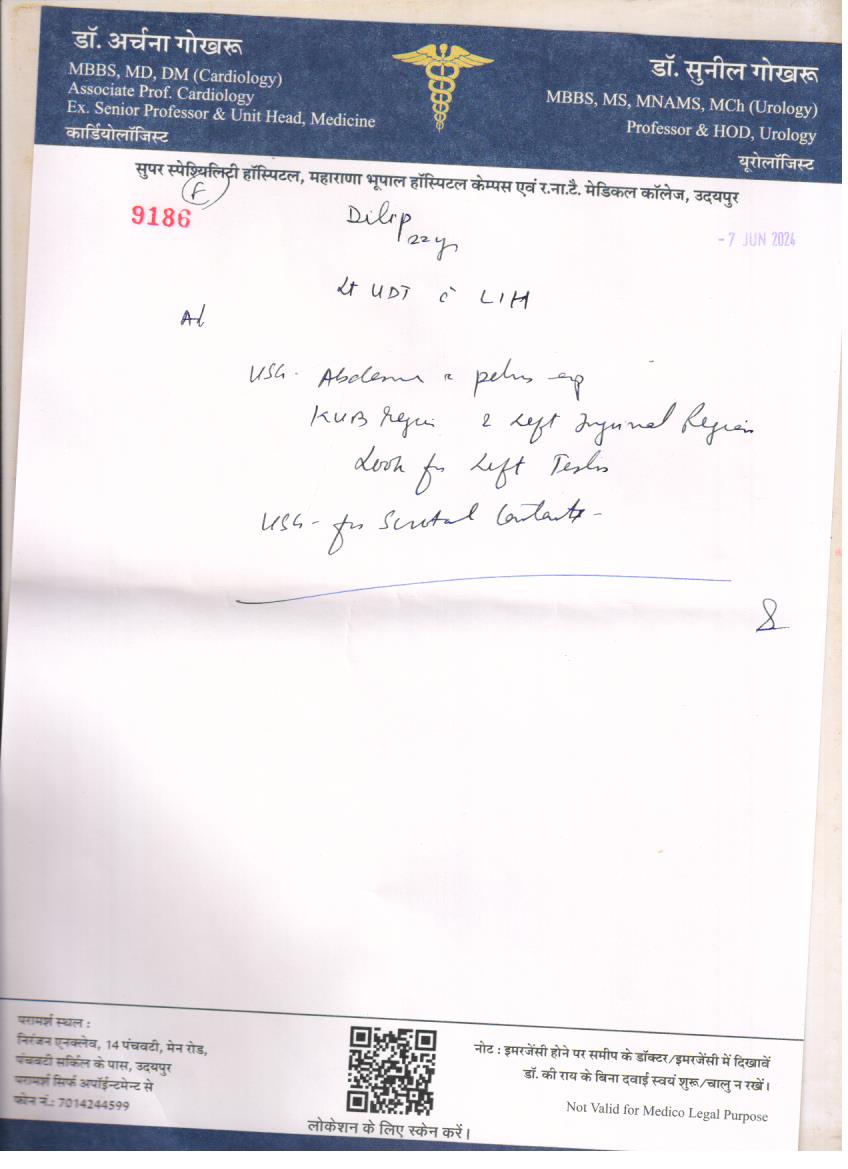 डॉ. अर्चना गोखरू
MBBS, MD, DM (Cardiology)
Associate Prof. Cardiology
Ex. Senior Professor & Unit Head, Medicine
कार्डियोलॉजिस्ट
डॉ. सुनील गोखरू
MBBS, MS, MNAMS, MCh (Urology)
Professor & HOD, Urology
यूरोलॉजिस्ट
सुपर स्पेश्यिलिटी हॉस्पिटल, महाराणा भूपाल हॉस्पिटल केम्पस एवं र.ना.टै. मेडिकल कॉलेज, उदयपुर
F
9186
Dilip
22y
-7 JUN 2024
Lt UDT c̄ LIH
Ad
USG- Abdomen & pelvis
KUB Region & Left Inguinal Region
Look for Left Testis
USG- for Scrotal Contents-
परामर्श स्थल :
निरंजन एनक्लेव, 14 पंचवटी, मेन रोड,
पंचवटी सर्किल के पास, उदयपुर
परामर्श सिर्फ अपॉईन्टमेन्ट से
फोन नं.: 7014244599
लोकेशन के लिए स्केन करें।
नोट : इमरजेंसी होने पर समीप के डॉक्टर/इमरजेंसी में दिखावें
डॉ. की राय के बिना दवाई स्वयं शुरू/चालु न रखें।
Not Valid for Medico Legal Purpose